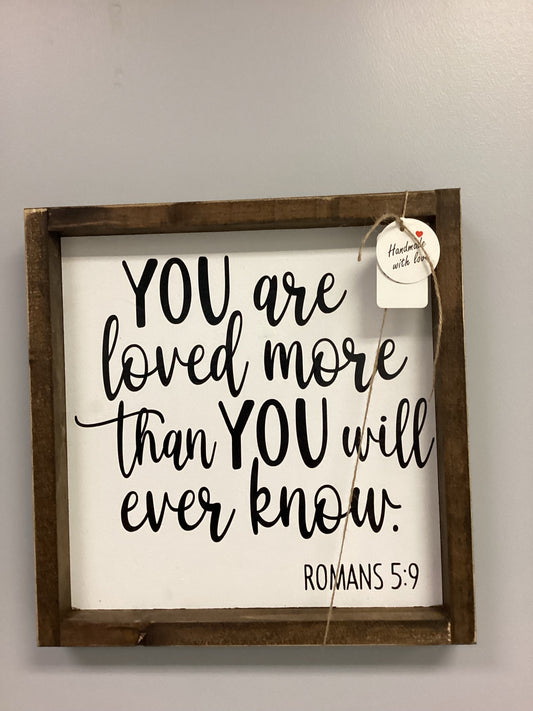 YOU are
loved more
than YOU will
ever know.
ROMANS 5:9
Handmade
with love